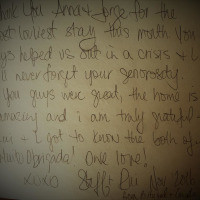 Thank You Anna & Jorge for the
best loveliest stay this month. You
guys helped us out in a crisis & I
'll never forget your generosity.
You guys were great, the home is
amazing and i am truly grateful
I got to know the both of
Muito Obrigada! One love!
xoxo Steffi Nov